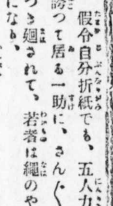 假令自分折紙でも、五人力
誇つて居る一助に、さんぐ
つき廻されて、若者は繩のや
になる。